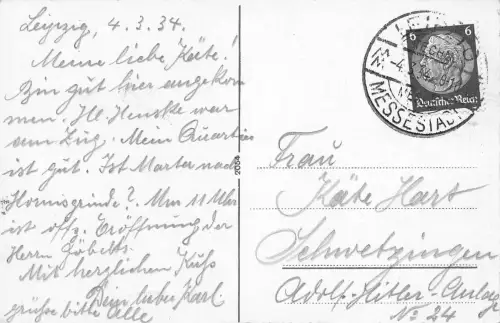 Leipzig, 4.3.34.
Meine liebe Käte!
Bin gut hier angekom
men. Hr. Henske war
am Zug. Mein Quartier
ist gut. Ist Marta nach
Hornisgrinde? Um 11 Uhr
ist offz. Eröffnung der
Herrn Göbels.
Mit herzlichen Kuss
Dein lieber Karl.
grüsse bitte alle
2084
6 6
Deutsches Reich
MESSESTADT
Frau
Käte Hart
Schwetzingen
Adolf-Hitler-Anlage
No 24